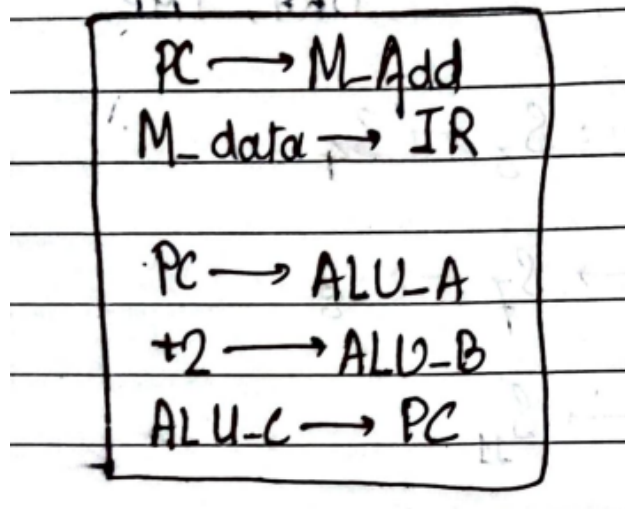 PC → M_Add
M_data → IR
PC → ALU_A
+2 → ALU_B
ALU_C → PC